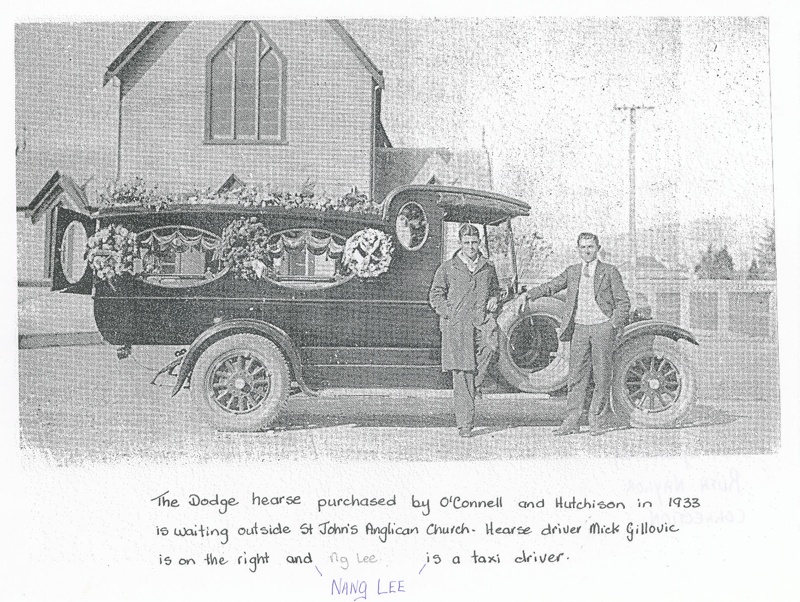 The Dodge hearse purchased by O'Connell and Hutchison in 1933
is waiting outside St John's Anglican Church. Hearse driver Mick Gillovic
is on the right and Ng Lee. is a taxi driver.
NANG LEE